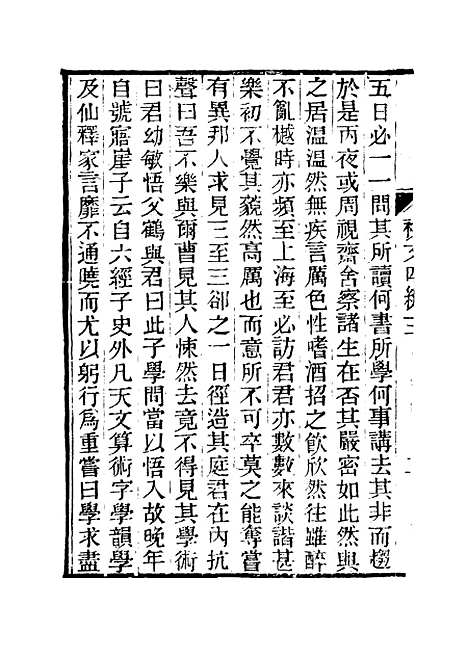 五日必一一問其所讀何書所學何事講去其非而趨
於是丙夜或周視齋舍察諸生在否其嚴密如此然與
之居溫溫然無疾言厲色性嗜酒招之飲欣然往雖醉
不亂樾時亦頻至上海至必訪君君亦數數來談諧甚
樂初不覺其藐然高厲也而意所不可卒莫之能奪嘗
有異邦人求見三至三卻之一日徑造其庭君在內抗
聲曰吾不樂與爾曹見其人悚然去竟不得見其學術
曰君幼敏悟父鶴與君曰此子學問當以悟入故晚年
自號寤崖子云自六經子史外凡天文算術字學韻學
及仙釋家言靡不通曉而尤以躬行爲重嘗曰學求盡